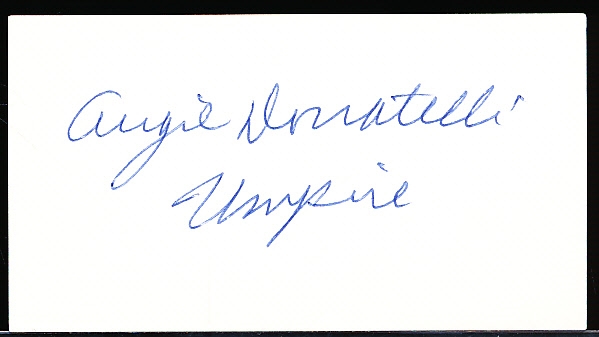 Augie Donatelli
Umpire